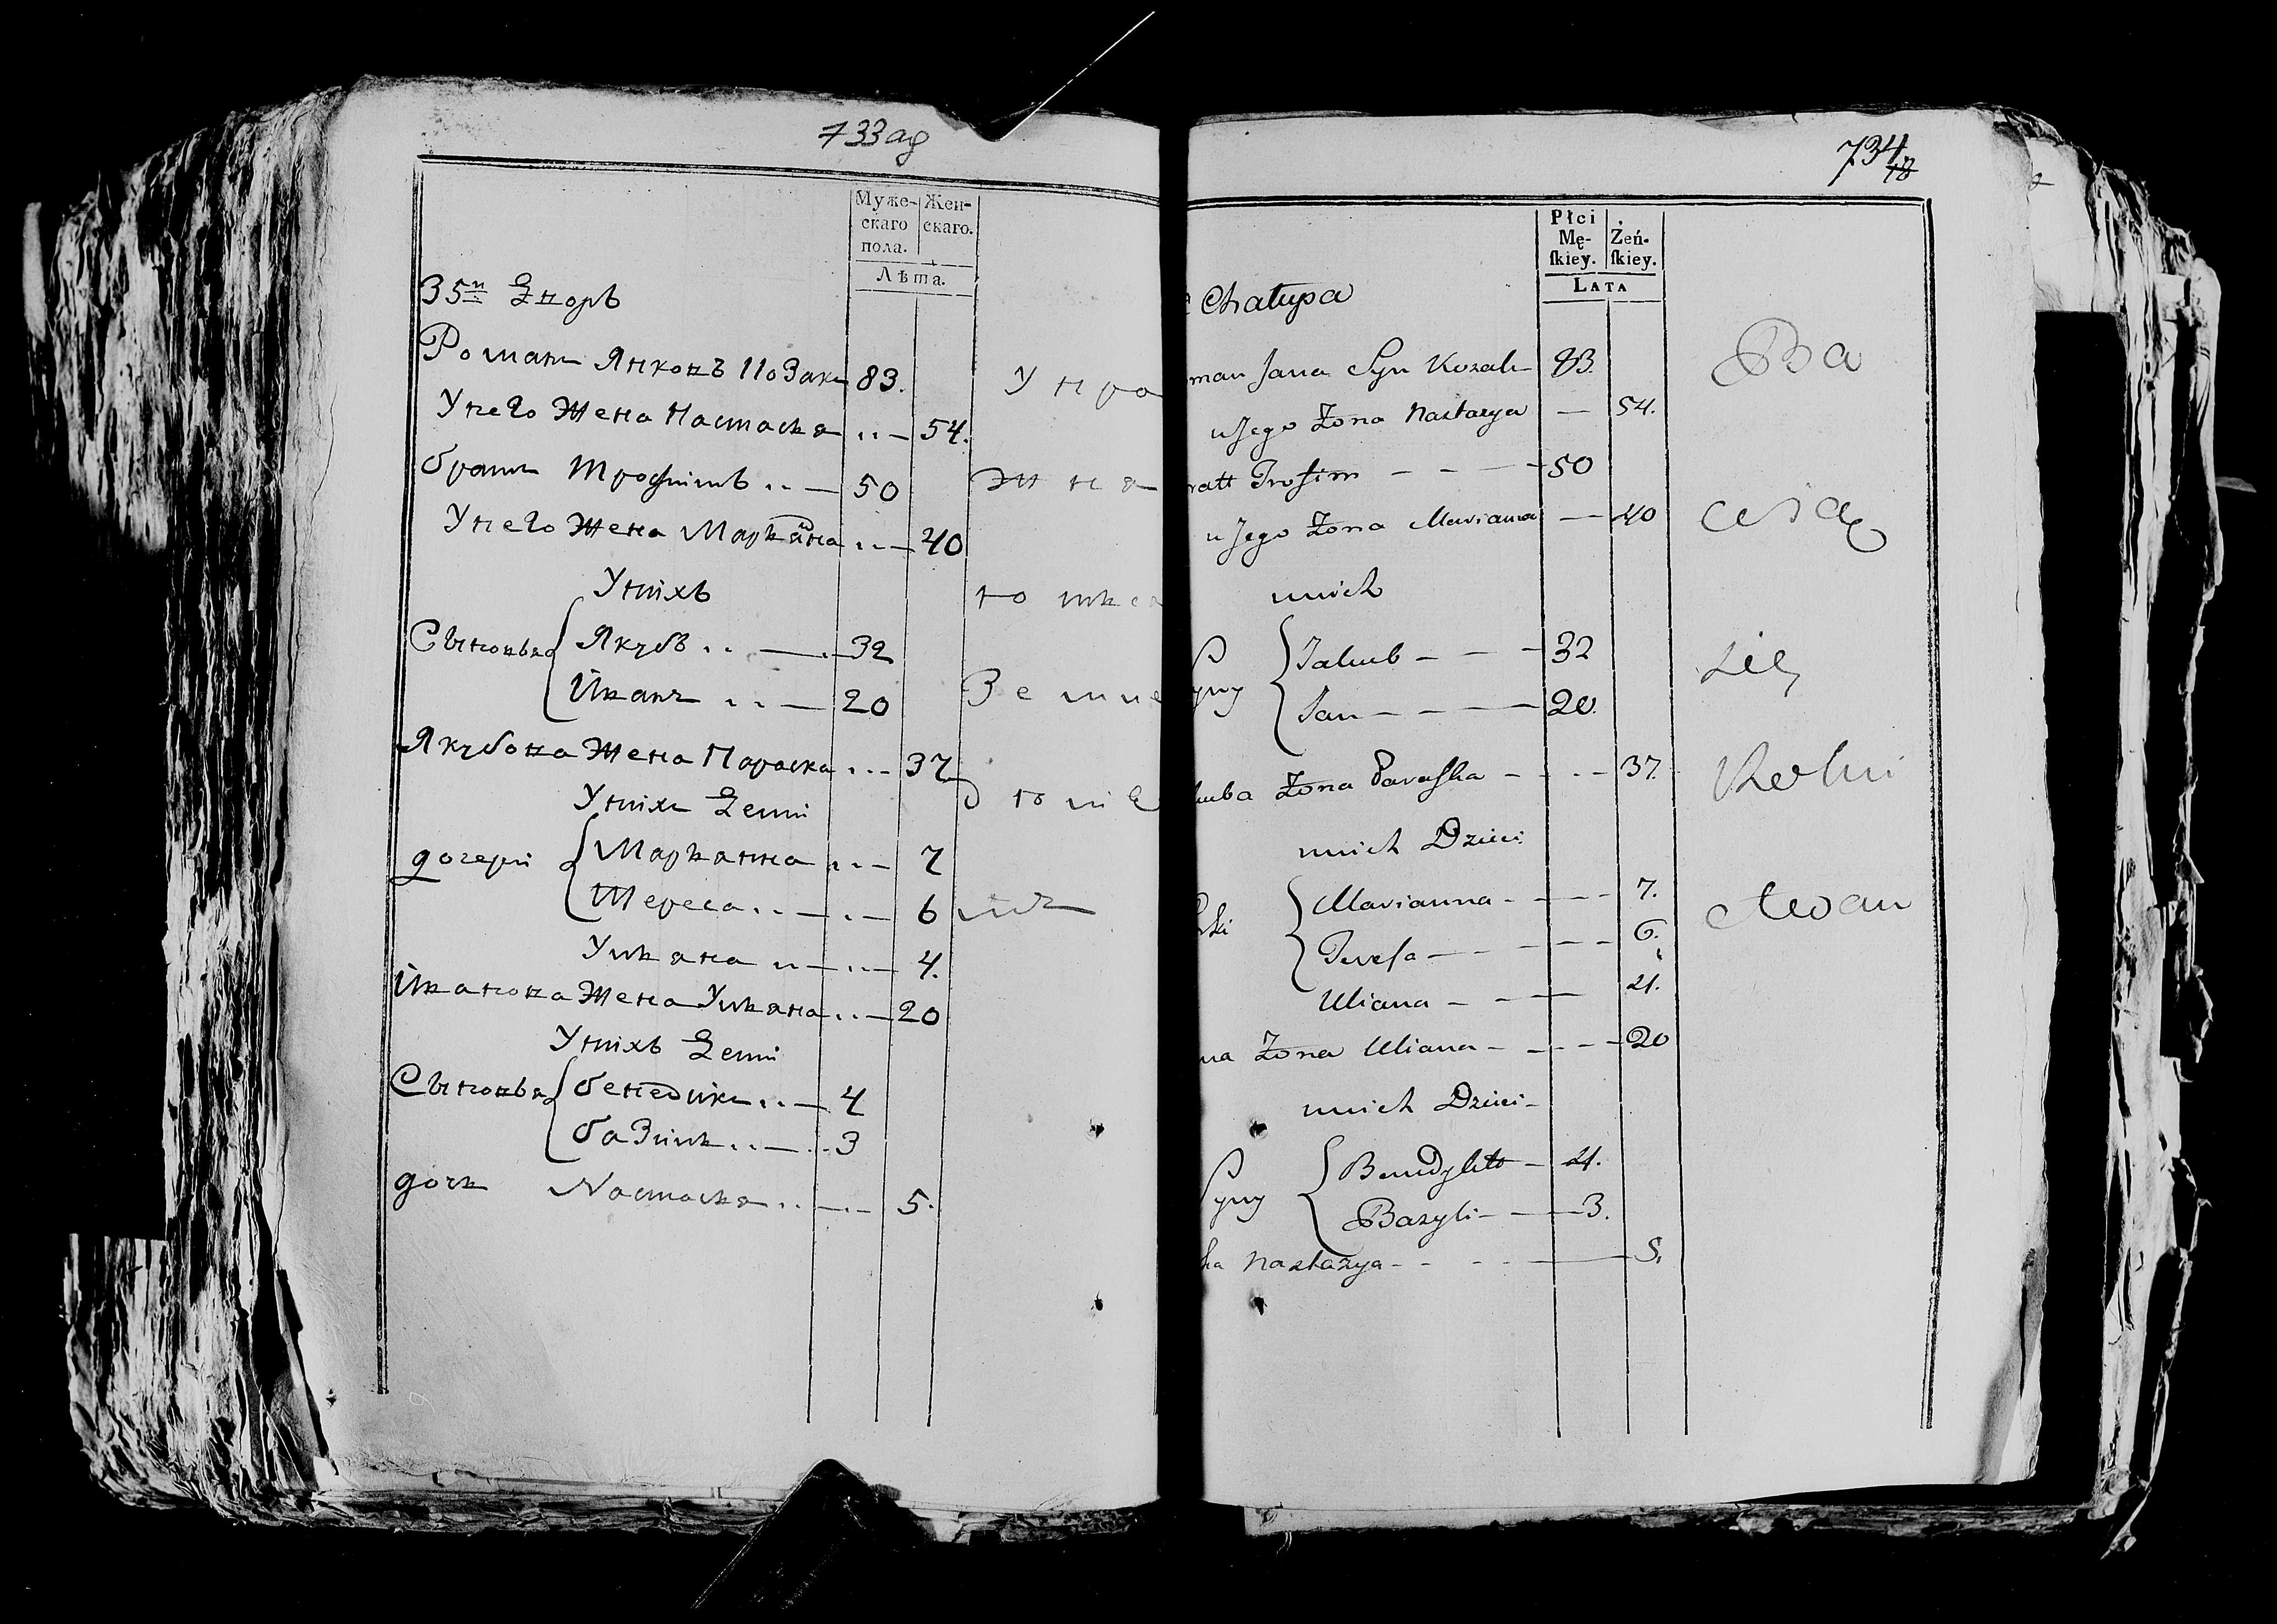 733 од
Муже-
скаго
пола.
Жен-
скаго.
Лѣта.
35й Дворъ
Романъ Янковъ Козакъ 83.
У него Жена Настасья ..— 54.
братъ Трофимъ ..— 50
У него Жена Марьяна ..— 40
У нихъ
Сыновья { Якубъ ..—. 32
Иванъ ..— 20
Якубова Жена Параска ..— 37
У нихъ Дети
дочери { Марьянна ..— 7
Тереса ..—..— 6
Ульяна ..—..— 4.
Иванова Жена Ульяна ..— 20
У нихъ Дети
Сыновья { бенедикъ ..— 4
базиль ..—.. 3
дочь Настасья ..—.. 5.
Упра
жня
то
Земле
734
Płci
Mę-
ſkiey.
Żeń-
ſkiey.
LATA
Chałupa
man Jana Syn Kozak — 83.
u Jego Żona Nastazya — 54.
ratt Trofim — — — 50
u Jego Żona Mariana — 40
unich
yny { Jakub — — — 32
Jan — — — 20.
kuba Żona Paraſka — - - — 37.
unich Dzieci
rki { Marianna - - — - 7.
Tereſa — - — - — 6.
Uliana — - — 4.
na Żona Uliana — - - - — 20
unich Dzieci —
Syny { Benedykt — 4.
Bazyli — - — 3.
ka Nastazya - - - — 5.
Ba
wią
się
Rolni
ctwem